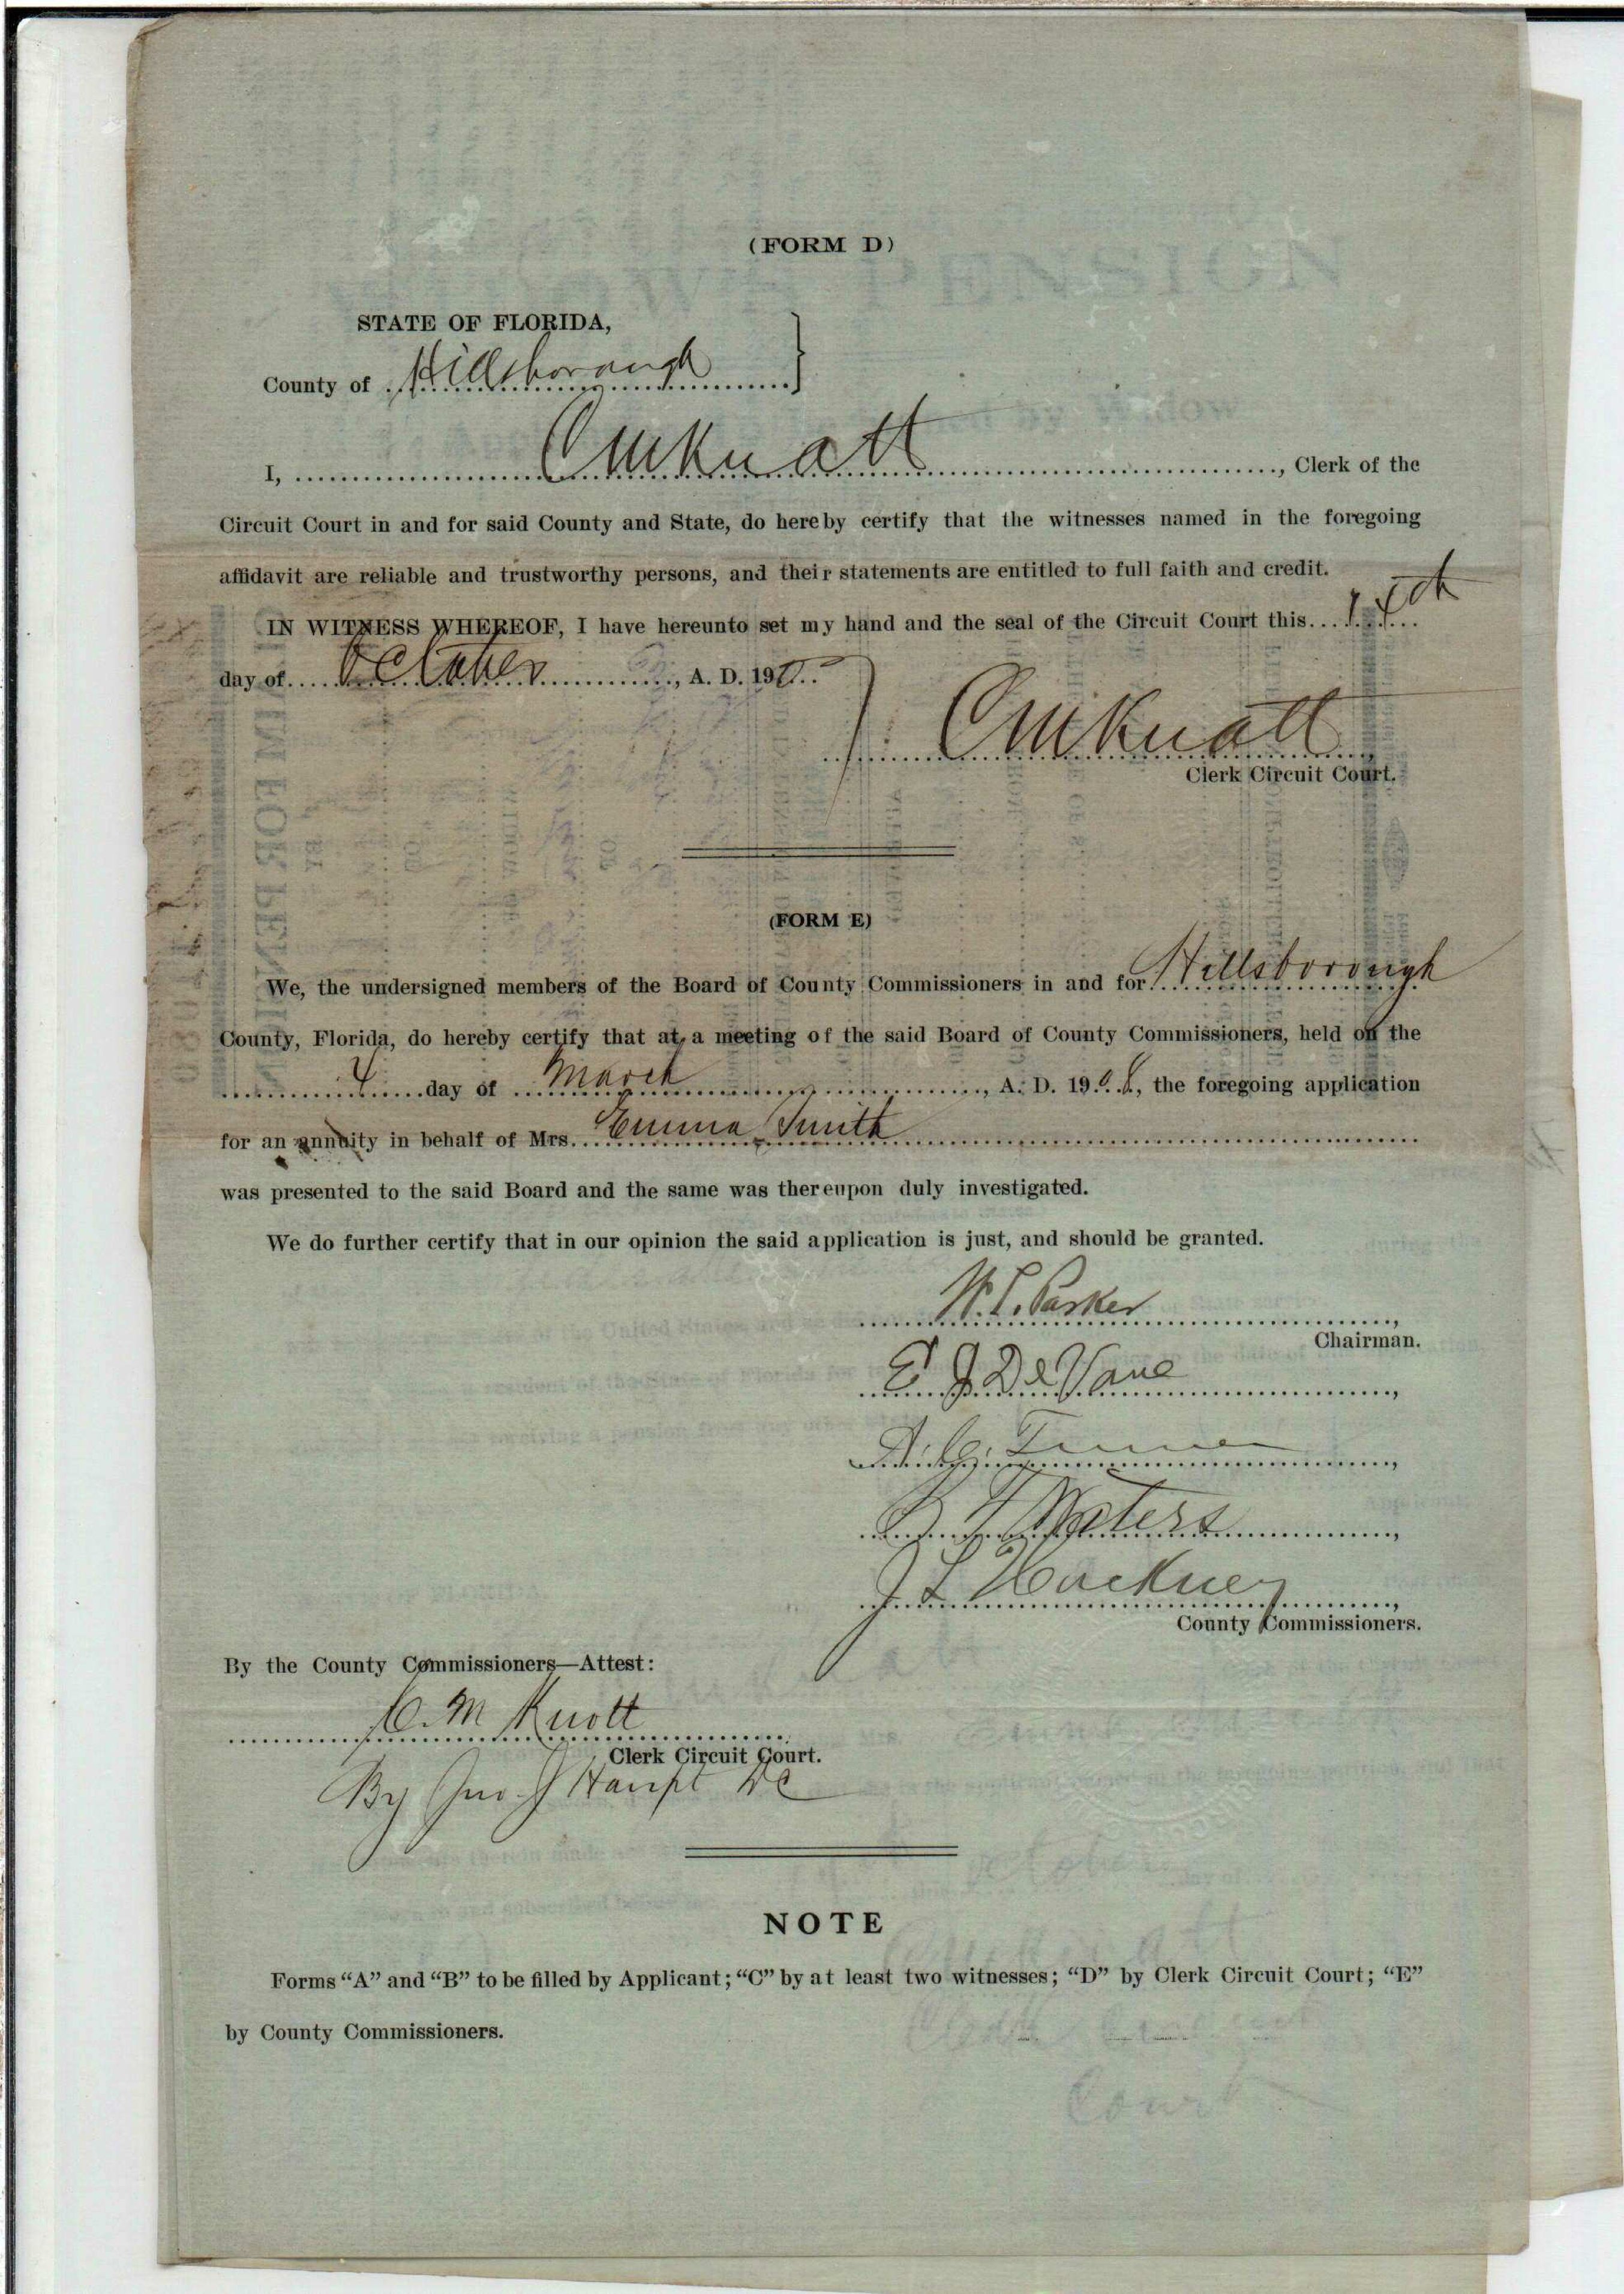 (FORM D)
STATE OF FLORIDA,
County of Hillsborough
I, CMKnott, Clerk of the
Circuit Court in and for said County and State, do hereby certify that the witnesses named in the foregoing
affidavit are reliable and trustworthy persons, and their statements are entitled to full faith and credit.
IN WITNESS WHEREOF, I have hereunto set my hand and the seal of the Circuit Court this
day of October, A. D. 190
CMKnott
Clerk Circuit Court.
(FORM E)
We, the undersigned members of the Board of County Commissioners in and for Hillsborough
County, Florida, do hereby certify that at a meeting of the said Board of County Commissioners, held on the
4 day of March, A. D. 1908, the foregoing application
for an annuity in behalf of Mrs. Emma Smith
was presented to the said Board and the same was thereupon duly investigated.
We do further certify that in our opinion the said application is just, and should be granted.
W. T. Parker
Chairman.
E J DeVane
Waters
J L Hackney
County Commissioners.
By the County Commissioners—Attest:
C. M Knott
Clerk Circuit Court.
By Jno. J Haupt DC
NOTE
Forms “A” and “B” to be filled by Applicant; “C” by at least two witnesses; “D” by Clerk Circuit Court; “E”
by County Commissioners.